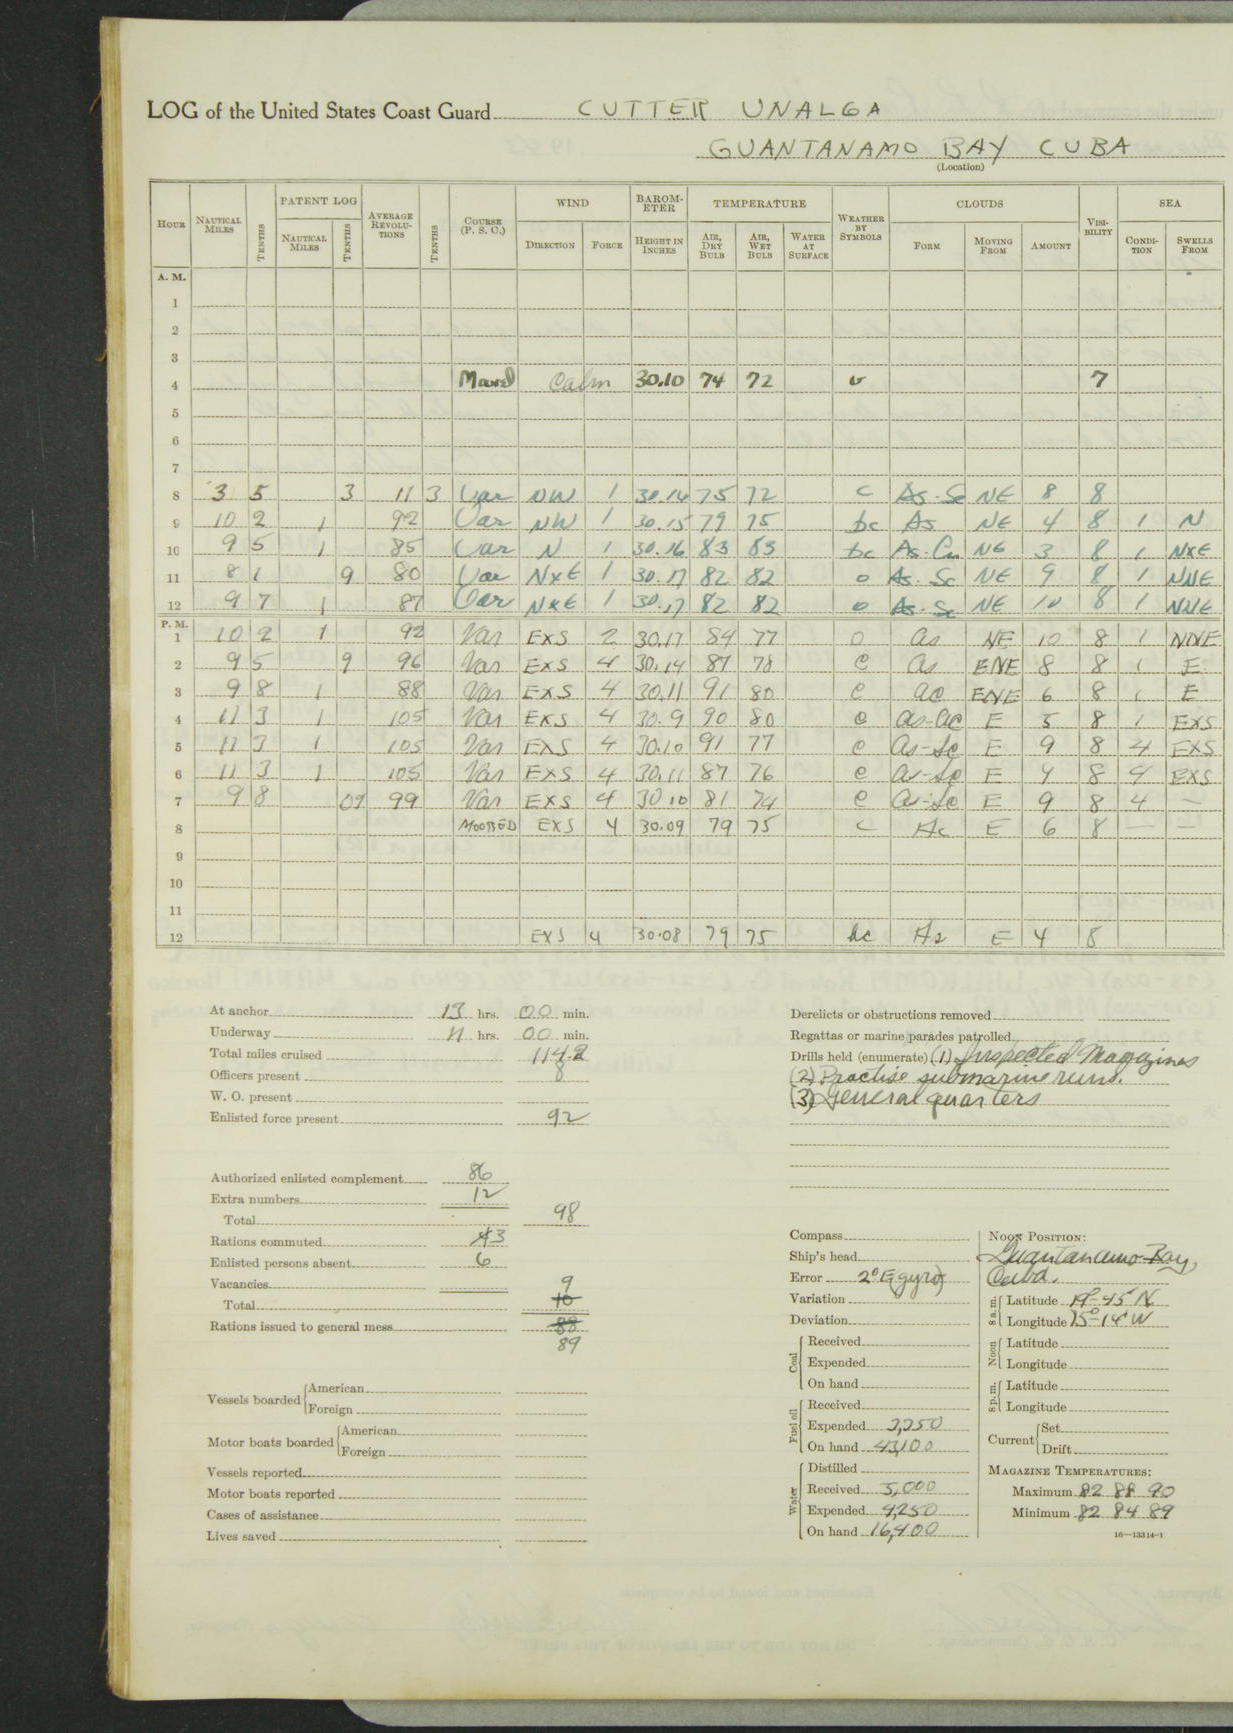 LOG of the United States Coast Guard CUTTER UNALGA
GUANTANAMO BAY CUBA
(Location)
HOUR NAUTICAL MILES TENTHS PATENT LOG NAUTICAL MILES TENTHS AVERAGE REVOLU-TIONS TENTHS COURSE (P. S. C.) WIND DIRECTION FORCE BAROM-ETER HEIGHT IN INCHES TEMPERATURE AIR, DRY BULB AIR, WET BULB WATER AT SURFACE WEATHER BY SYMBOLS CLOUDS FORM MOVING FROM AMOUNT VISI-BILITY SEA CONDI-TION SWELLS FROM
A. M.
1
2
3
4 Moored Calm 30.10 74 72 7
5
6
7
8 3 5 3 11 3 Var NW 1 30.14 75 72 c As-Sc NE 8 8
9 10 2 1 92 Var NW 1 30.15 79 75 bc As NE 4 8 1 N
10 9 5 1 85 Var N 1 30.16 83 83 bc As-Cu NE 3 8 1 NxE
11 8 1 9 80 Var NxE 1 30.17 82 82 o As-Sc NE 9 8 1 NNE
12 9 7 1 87 Var NxE 1 30.17 82 82 o As-Sc NE 10 8 1 NNE
P. M.
1 10 2 1 92 Var EXS 2 30.17 84 77 o As NE 10 8 1 NNE
2 9 5 9 96 Var EXS 4 30.14 87 78 c As ENE 8 8 1 E
3 9 8 1 88 Var EXS 4 30.11 91 80 c Ac ENE 6 8 1 E
4 11 3 1 105 Var EXS 4 30.9 90 80 c As-Ac E 5 8 1 EXS
5 11 3 1 105 Var EXS 4 30.10 91 77 c As-Sc E 9 8 4 EXS
6 11 3 1 105 Var EXS 4 30.11 87 76 c As-Sc E 9 8 4 EXS
7 9 8 09 99 Var EXS 4 30.10 81 74 c As-Sc E 9 8 4 —
8 MOORED EXS 4 30.09 79 75 c Ac E 6 8 — —
9
10
11
12 EXS 4 30.08 79 75 bc As E 4 8
At anchor 13 hrs. 00 min.
Underway 11 hrs. 00 min.
Total miles cruised 114.2
Officers present 8
W. O. present
Enlisted force present 92
Authorized enlisted complement 86
Extra numbers 12
Total 98
Rations commuted 43
Enlisted persons absent 6
Vacancies 9
Total 10
Rations issued to general mess 88
89
Vessels boarded American
Foreign
Motor boats boarded American
Foreign
Vessels reported
Motor boats reported
Cases of assistance
Lives saved
Derelicts or obstructions removed
Regattas or marine parades patrolled
Drills held (enumerate) (1) Inspected Magazines
(2) Practise submarine runs.
(3) General quarters
Compass
Ship's head
Error 2° E (gyro)
Variation
Deviation
Coal Received
Expended
On hand
Fuel oil Received
Expended 2,250
On hand 43,100
Water Distilled
Received 5,000
Expended 4,250
On hand 16,400
NOON POSITION:
Guantanamo Bay,
Cuba.
8 a. m. Latitude 19°-45' N
Longitude 75°-14' W
Noon Latitude
Longitude
8 p. m. Latitude
Longitude
Current Set
Drift
MAGAZINE TEMPERATURES:
Maximum 82 88 90
Minimum 82 84 89
16—13314-1